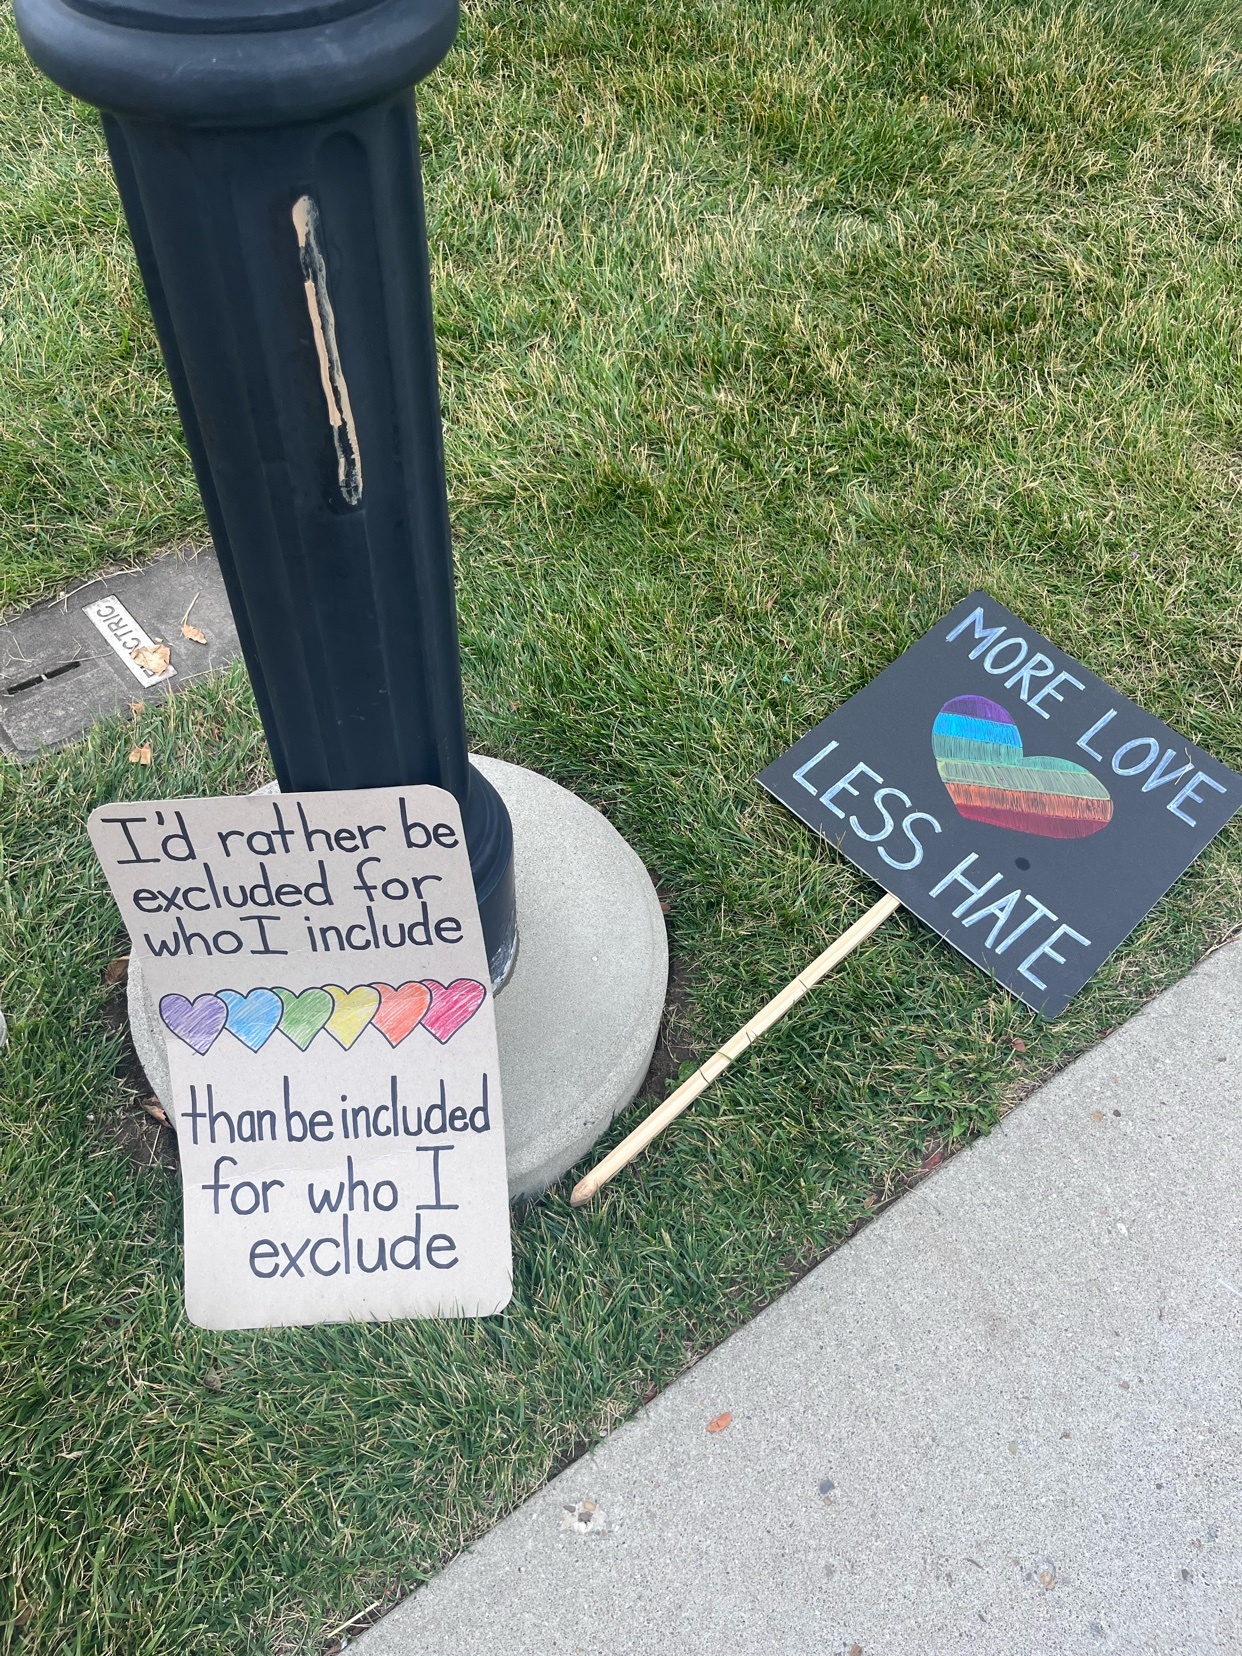 I'd rather be
excluded for
who I include
than be included
for who I
exclude
MORE LOVE
LESS HATE